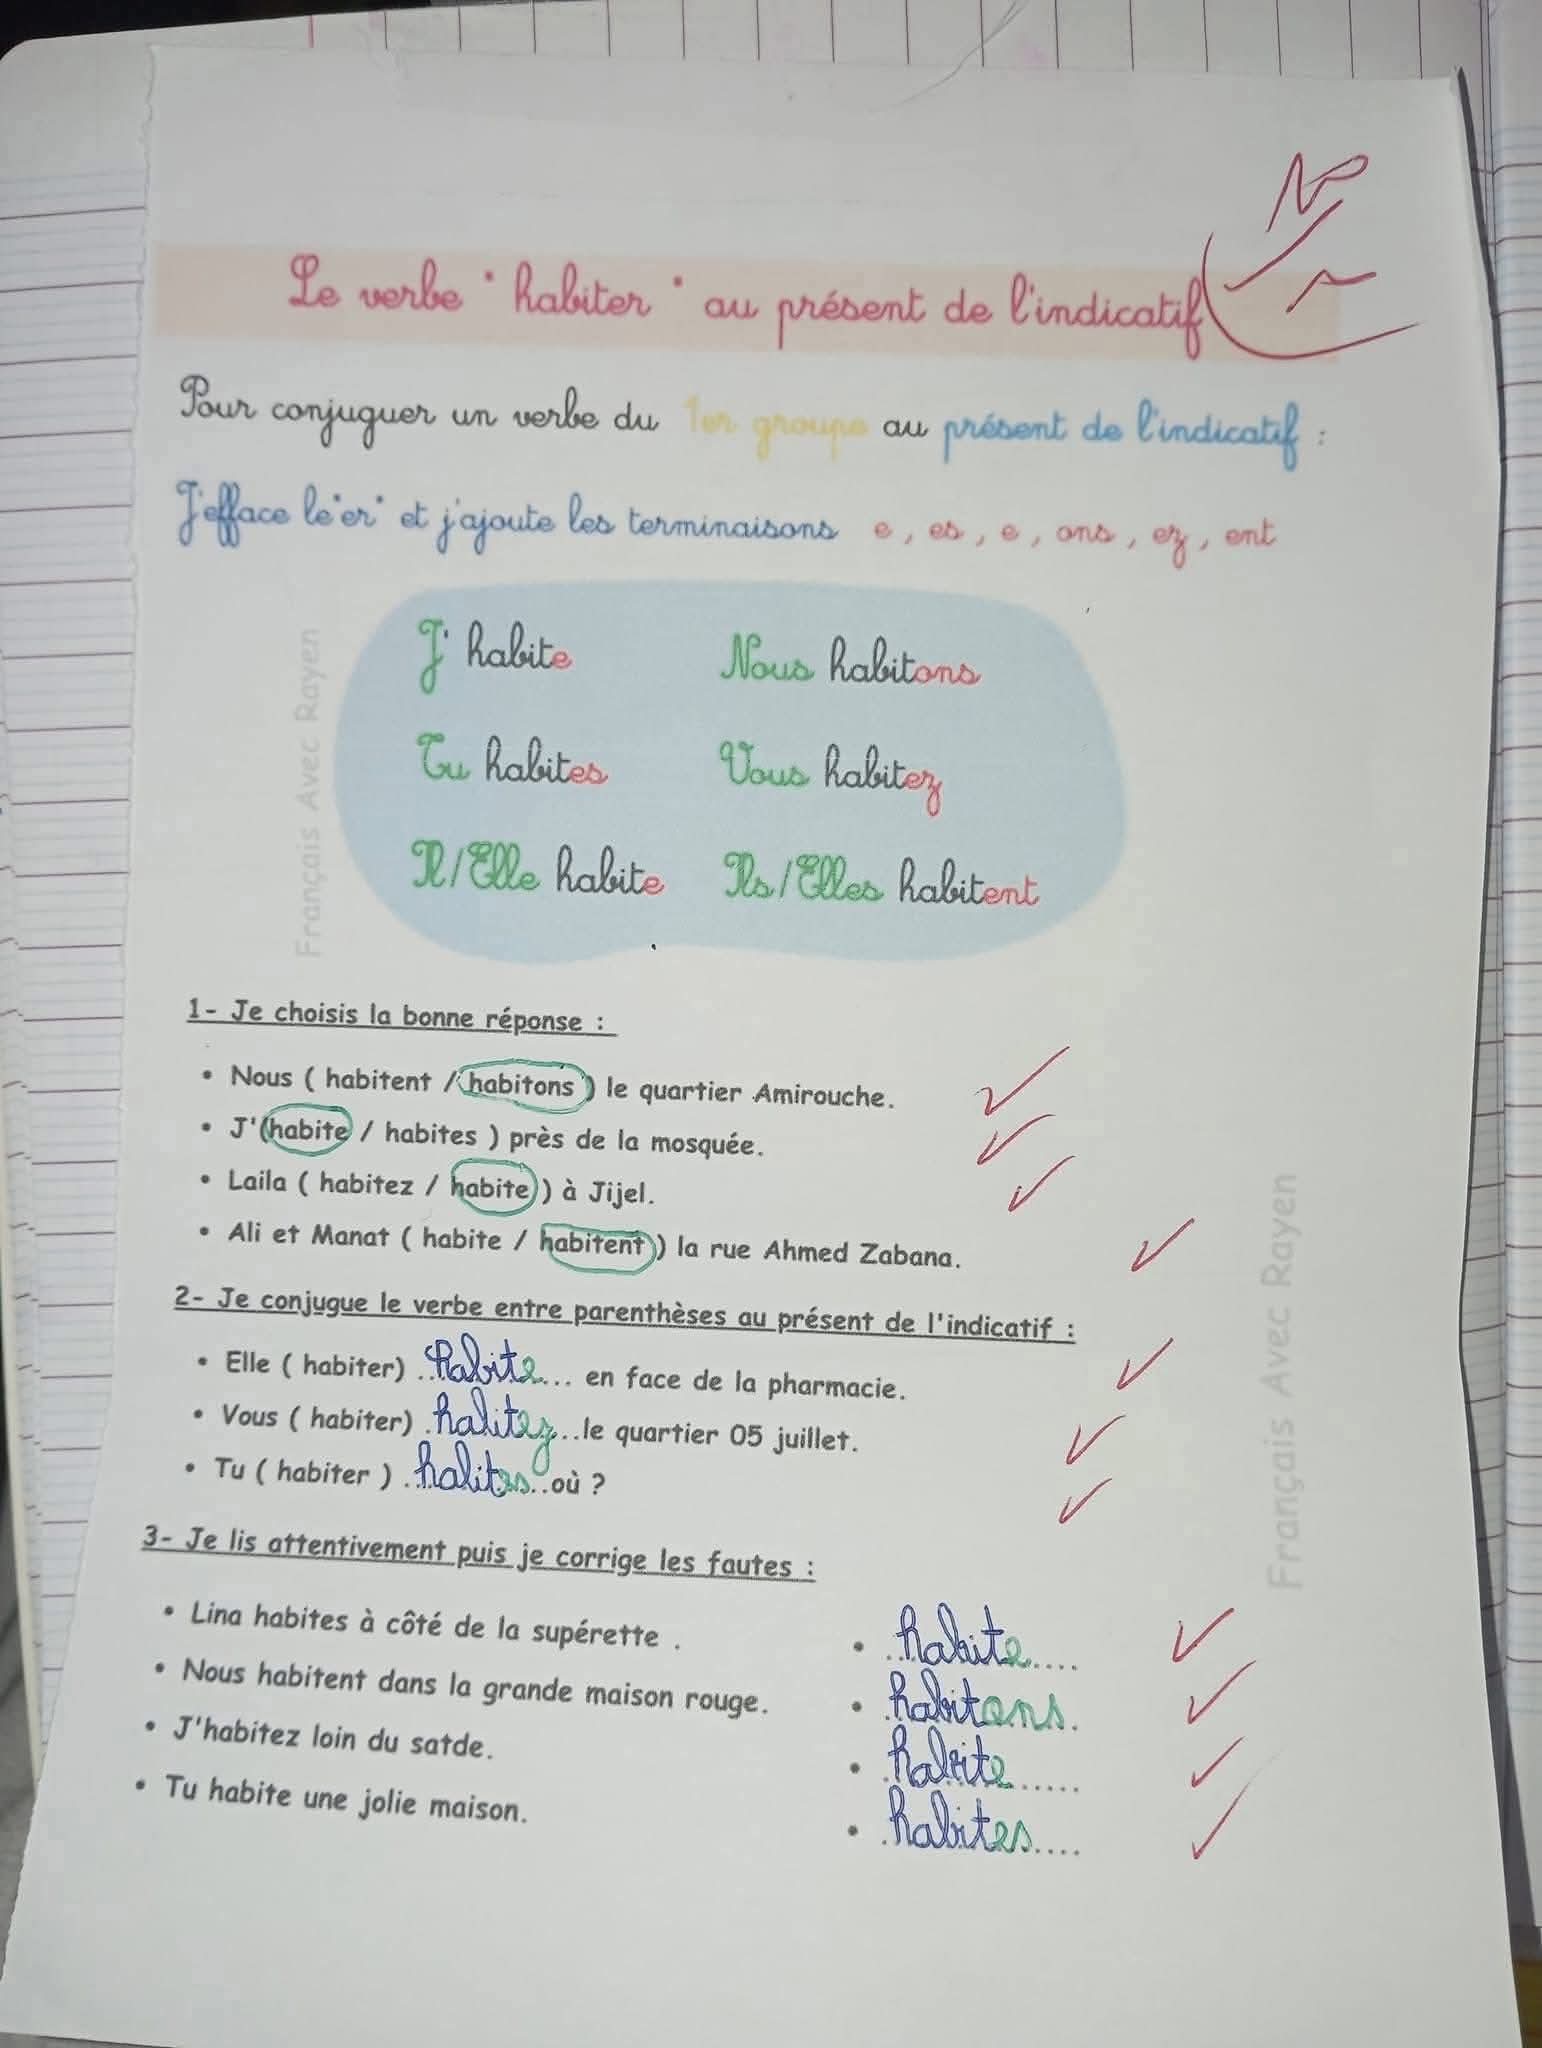 Le verbe " habiter " au présent de l'indicatif
Pour conjuguer un verbe du 1er groupe au présent de l'indicatif :
J'efface le "er" et j'ajoute les terminaisons e , es , e , ons , ez , ent
J' habite Nous habitons
Tu habites Vous habitez
Il/Elle habite Ils/Elles habitent
Français Avec Rayen
1- Je choisis la bonne réponse :
• Nous ( habitent / habitons ) le quartier Amirouche.
• J'( habite / habites ) près de la mosquée.
• Laila ( habitez / habite ) à Jijel.
• Ali et Manat ( habite / habitent ) la rue Ahmed Zabana.
2- Je conjugue le verbe entre parenthèses au présent de l'indicatif :
• Elle ( habiter) ..habite... en face de la pharmacie.
• Vous ( habiter) .habitez...le quartier 05 juillet.
• Tu ( habiter ) ..habites..où ?
Français Avec Rayen
3- Je lis attentivement puis je corrige les fautes :
• Lina habites à côté de la supérette . • ..habite....
• Nous habitent dans la grande maison rouge. • .habitons.
• J'habitez loin du satde. • .habite......
• Tu habite une jolie maison. • .habites....